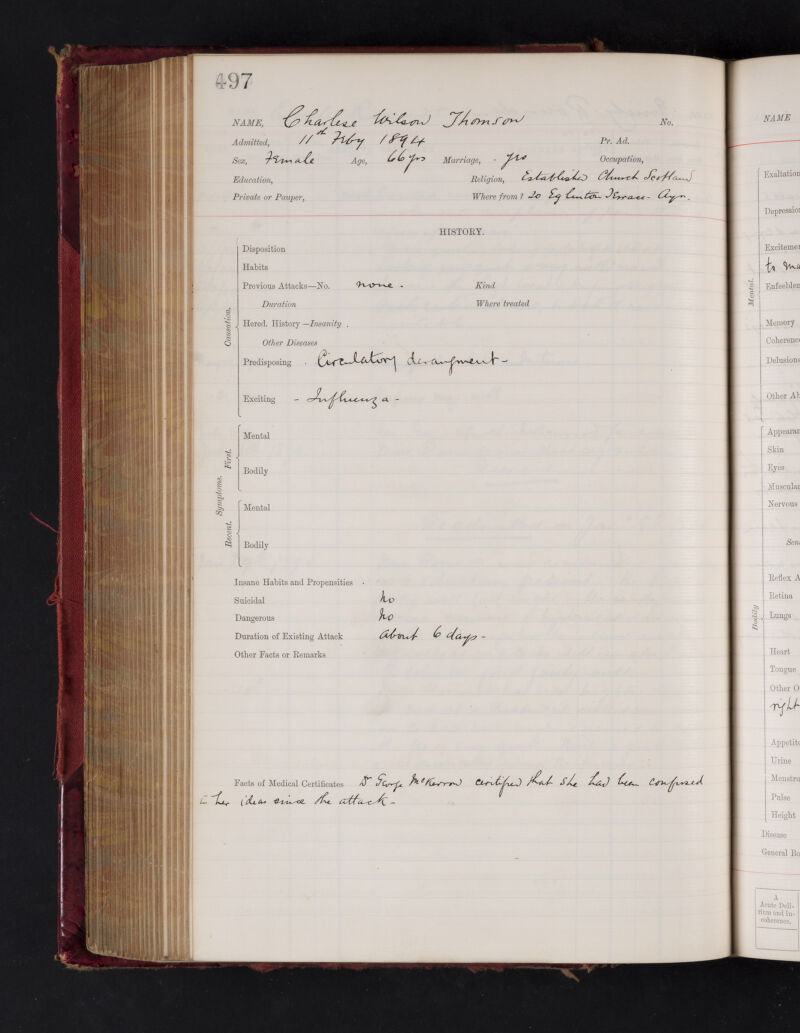 497
NAME, Charlese Wilson Thomson No.
Admitted, 11th Feby 1894 Pr. Ad.
Sex, Female Age, 66 yrs Marriage, - yes Occupation,
Education, Religion, Established Church Scotland
Private or Pauper, Where from? 20 Eglinton Terrace - Ayr.
HISTORY.
Causation.
Disposition
Habits
Previous Attacks—No. none - Kind
Duration Where treated
Hered. History—Insanity .
Other Diseases
Predisposing . Circulatory derangment -
Exciting - Influenza -
Symptoms.
First.
Mental
Bodily
Recent.
Mental
Bodily
Insane Habits and Propensities .
Suicidal No
Dangerous No
Duration of Existing Attack About 6 days -
Other Facts or Remarks
Facts of Medical Certificates Dr George McKerrow certified that she had been confused
in her ideas since the attack -
NAME
Mental.
Exaltation
Depression
Excitemen
to ma
Enfeeblem
Memory
Coherence
Delusions
Other Ab
Bodily
Appearan
Skin
Eyes
Muscular
Nervous
Sen
Reflex A
Retina
Lungs
Heart
Tongue
Other O
right
Appetite
Urine
Menstru
Pulse
Height
Disease
General Bo
A
Acute Deli-
rium and In-
coherence.